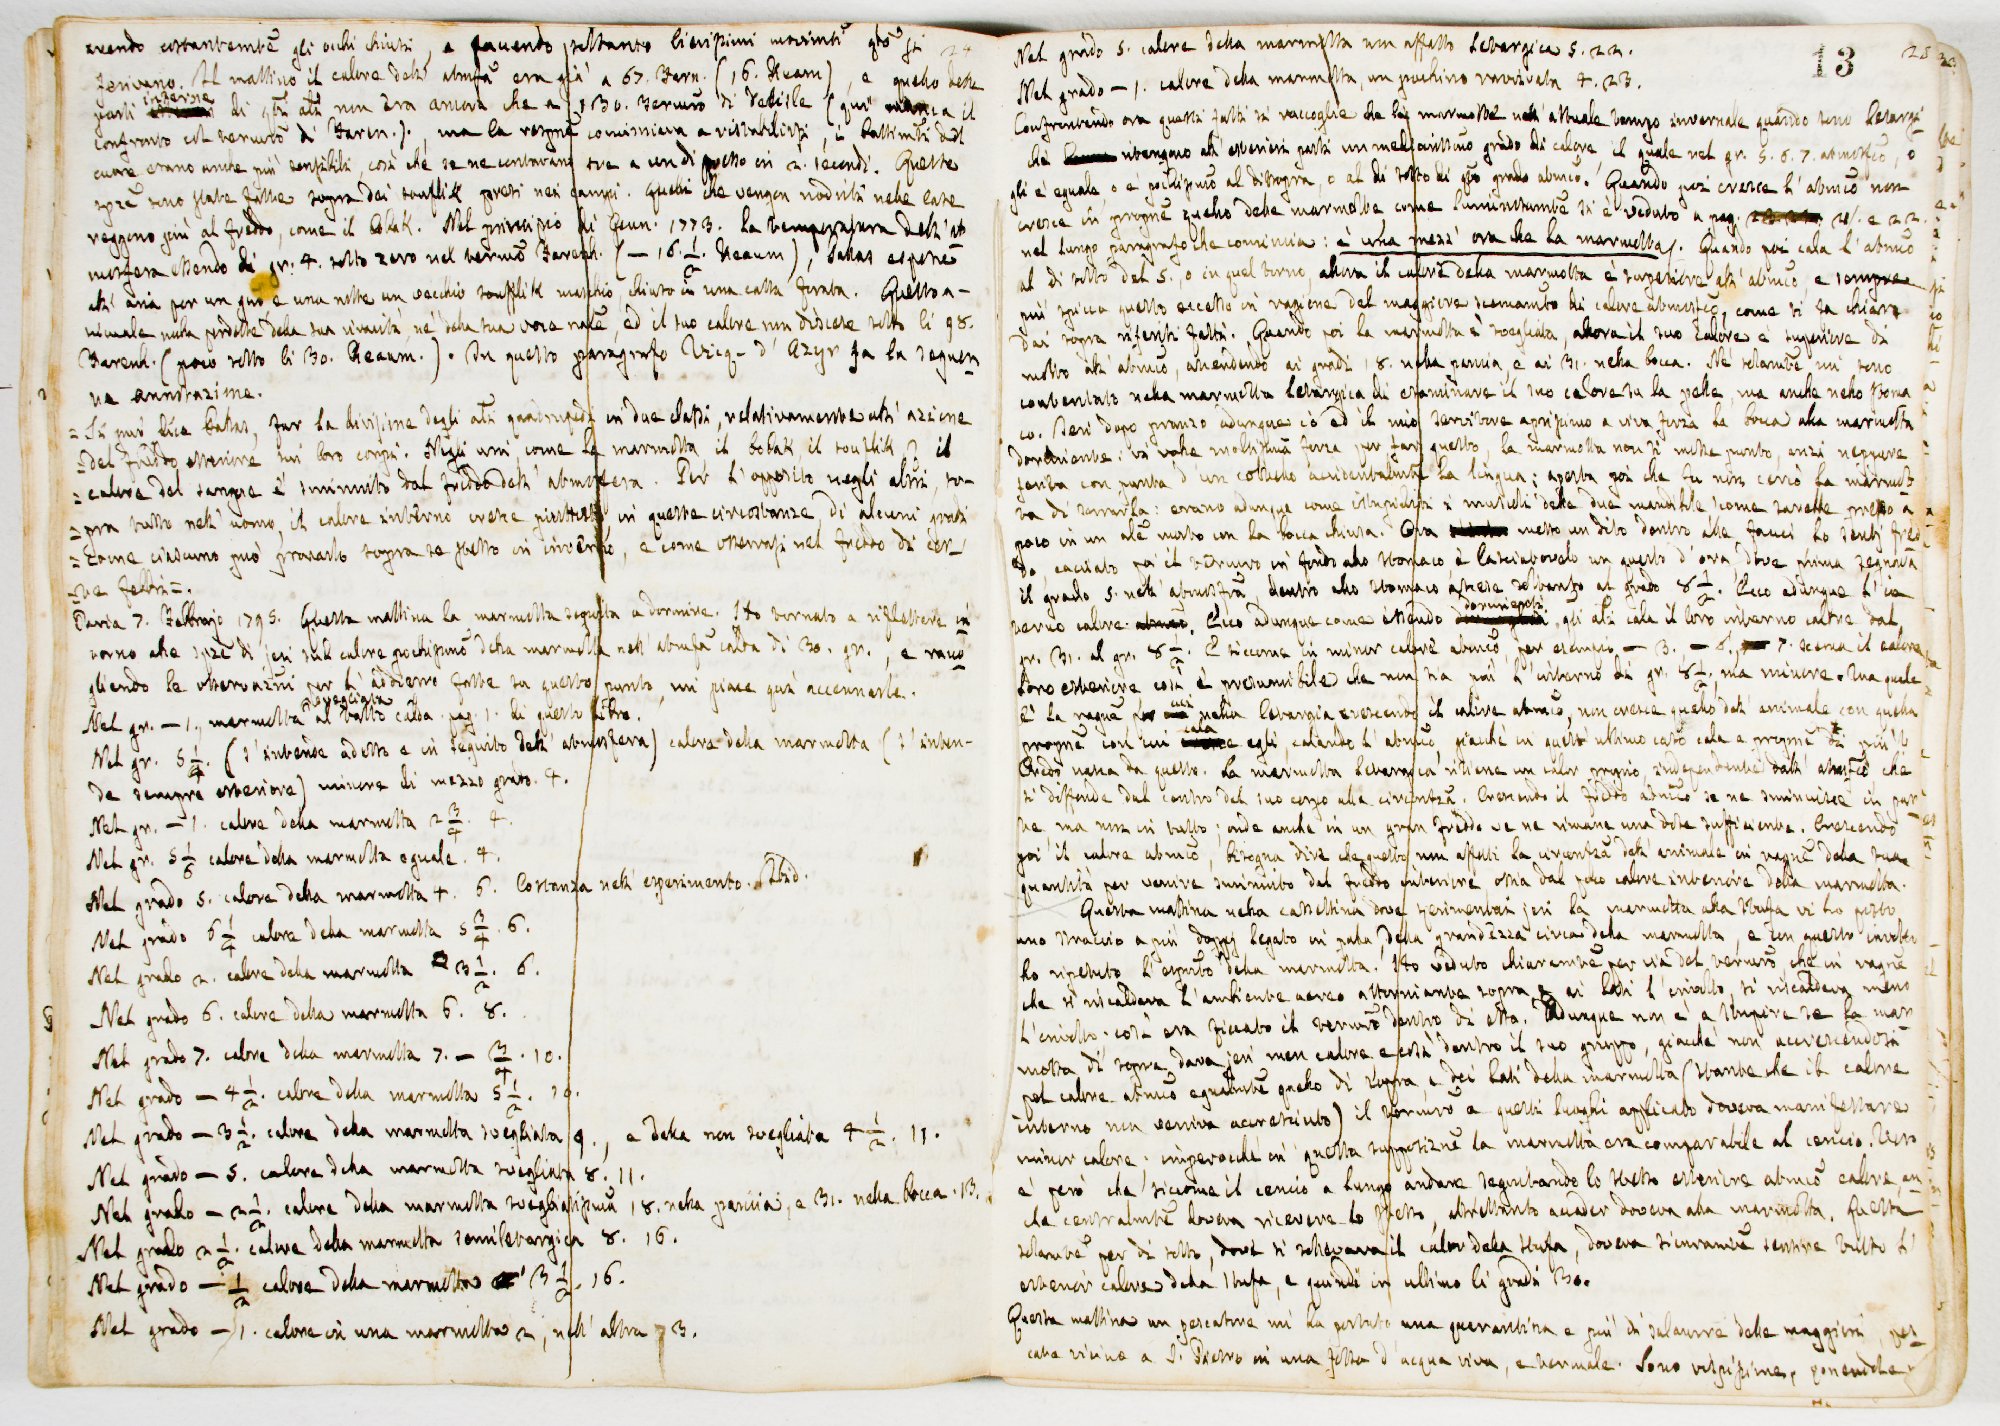 avendo costantemte gli occhi chiusi, e facendo soltanto lievissimi movimti qdo si
ferivano. Il mattino il calore dell' atmosfa era già a 67. Faren. (16. Reaum), e quello delle
parti interne di qti ali non era ancora che a 130. termro di Delisle (qui manca il
confronto col termro di Faren.)., ma la respne cominciava a ristabilirsi, i battimti del
cuore erano anche più sensibili, così che se ne contavano tre a un di presso in 2. secondi. Queste
spze sono state fatte sopra dei souslik presi nei campi. Quelli che vengon nodriti nelle case
reggono più al freddo, come il Bobak. Nel principio di Genn. 1773. la temperatura dell' at
mosfera essendo di gr. 4. sotto zero nel termro Farenh. (— 16. 1/2. Reaum), Pallas espose
all' aria per un gno, e una notte un vecchio souslik maschio, chiuso in una cassa ferata. Questo a-
nimale nulla perdette della sua vivacità, nè della sua voce nale, ed il suo calore non discese sotto li 98.
Farenh. (poco sotto li 30. Reaum.). In questo paragrafo Vicq-d' Azyr fa la seguen
te annotazione.
= Si può dice Pallas, far la divisione degli ali quadrupedi in due classi, relativamente all' azione
= del freddo esteriore sui loro corpi. Negli uni come la marmotta il bobak, il souslik, il
= calore del sangue è sminuito dal freddo dell' atmosfera. Per l' opposito negli altri, so-
= pra tutto nell' uomo, il calore interno cresce piuttosto in queste circostanze, di alcuni gradi
= come ciascuno può provarlo sopra se stesso in inverno, e come osservasi nel freddo di cer
= te febbri =.
Pavia 7. Febbrajo 1795. Questa mattina la marmotta seguita a dormire. Ho tornato a riflettere in
torno alle spze di jeri sul calore pochissimo della marmotta nell' atmosfa calda di 30. gr., e racco
gliendo le osservazni per l' addietro fatte su questo punto, mi piace quì accennarle.
Nel gr. — 1., marmotta risvegliata al tatto calda. pag. 1. di questo libro.
Nel gr. 5 1/4. (s' intende adesso e in seguito dell' atmosfera) calore della marmotta (s' inten-
de sempre esteriore) minore di mezzo grado. 4.
Nel gr. — 1. calore della marmotta 2 3/4. 4.
Nel gr. 5 1/2 calore della marmotta eguale. 4.
Nel grado 5. calore della marmotta 4. 6. Costanza nell' esperimento. Ibid.
Nel grado 6 1/4 calore della marmotta 5 3/4. 6.
Nel grado 2. calore della marmotta 3 1/2. 6.
Nel grado 6. calore della marmotta 6. 8.
Nel grado 7. calore della marmotta 7. — 3/4. 10.
Nel grado — 4 1/2. calore della marmotta 5 1/2. 10.
Nel grado — 3 1/2. calore della marmotta svegliata 9., e della non svegliata 4 1/2. 11.
Nel grado — 5. calore della marmotta svegliata 8. 11.
Nel grado — 2 1/2. calore della marmotta svegliatissima 18. nella pancia, e 31. nella bocca. 13.
Nel grado 2 1/2. calore della marmotta semiletargica 8. 16.
Nel grado — 1/2 calore della marmotta 3 1/2. 16.
Nel grado — 1. calore in una marmotta 2, nell' altra 3.
13
Nel grado 5. calore della marmotta un affatto letargica 5. 22.
Nel grado — 1. calore della marmotta, un pochino ravvivata 4. 23.
Confrontando ora questi fatti si raccoglie che le marmotte nell' attuale tempo invernale quando sono letargi
che ritengono all' esteriori parti un mediocrissimo grado di calore, il quale nel gr. 5. 6. 7. atmosfco, o
gli è eguale, o è pochissimo al disopra, o al di sotto di qto grado atmco. Quando poi cresce l' atmco non
cresce in propne quello delle marmotte come luminosamte si è veduto a pag. 21. e 22.
nel lungo paragrafo che comincia: è una mezz' ora che la marmotta. Quando poi cala l' atmco
al di sotto del 5., o in quel torno, allora il calore della marmotta è superiore all' atmco e sempre
più spicca questo eccesso in ragione del maggiore scemamto di calore atmosfco, come si fa chiaro
dai sopra riferiti fatti. Quando poi la marmotta è svegliata, allora il suo calore è superiore di
molto all' atmco, ascendendo ai gradi 18. nella pancia, e ai 31. nella bocca. Nè solamte mi sono
contentato nella marmotta letargica di esaminare il suo calore su la pelle, ma anche nello stoma
co. Jeri dopo pranzo adunque io ed il mio servitore aprissimo a viva forza la bocca alla marmotta
dormiente: vi volle moltissima forza per far questo, la marmotta non si mosse punto, anzi neppure
ferita con punta d' un coltello accidentalmte la lingua; aperta poi che fu non cercò la marmot
ta di serrarla: erano adunque come istupiditi i muscoli delle due mandibole come sarebbe presso a
poco in un ale morto con la bocca chiusa. Ora messo un dito dentro alle fauci ho sentj fred
do, cacciato poi il termro in fondo allo stomaco e lasciatovelo un quarto d' ora, dove prima segnava
il grado 5. nell' atmosfa, dentro allo stomaco ascese soltanto al grado 8 1/2. Ecco adunque l' in
terno calore. Ecco adunque come essendo dormienti, gli ali cala il loro interno calore dal
gr. 31. al gr. 8 1/2. E siccome in minor calore atmco, per esempio — 3. — 6. 7. scema il calore
loro esteriore così è presumibile che non sia più l' interno di gr. 8 1/2. ma minore. Ma quale
è la ragne per cui nella letargia crescendo il calore atmco, non cresce quello dell' animale con quella
propne con cui cala egli, calando l' atmco, giacchè in quest' ultimo caso cala a propne di più?
Credo nasca da questo. La marmotta letargica ritiene un calor proprio, independente dall' atmosfco che
si diffonde dal centro del suo corpo alla circonfza. Crescendo il freddo atmco se ne sminuisce in par
te, ma non in tutto; onde anche in un gran freddo ve ne rimane una dose sufficiente. Crescendo
poi il calore atmco, bisogna dire che questo non affetti la circonfza dell' animale in ragne della sua
quantità per venire sminuito dal freddo interiore ossia dal poco calore interiore della marmotta.
Questa mattina nella cassettina dove sperimentai jeri la marmotta alla stufa vi ho posto
uno straccio a più doppj legato in palla, della grandezza circa della marmotta, e con questo involto
ho ripetuto l' espto della marmotta. Ho veduto chiaramte per via del termro che in ragne
che si riscaldava l' ambiente aereo attorniante sopra e ai lati l' involto, si riscaldava meno
l' involto. così era ficcato il termro dentro di esso. Adunque non è a stupire se la mar
motta di sopra dava jeri men calore e così dentro il suo gruppo, giacchè non accrescendosi
pel calore atmco egualmte quello di sopra, e dei lati della marmotta (stante che il calore
interno non veniva accresciuto) il termro a questi luoghi applicato doveva manifestare
minor calore; imperocchè in questa supposizne la marmotta era comparabile al cencio. Vero
è però che siccome il cencio a lungo andare seguitando lo stesso esteriore atmco calore, an
che centralmte doveva ricevere lo stesso, altrettanto accader doveva alla marmotta. Questa
solamte per di sotto, dove si sollevava il calor della stufa, doveva sicuramte sentire tutto l'
esterior calore della stufa, e quindi in ultimo li gradi 30.
Questa mattina un pescatore mi ha portato una quarantina e più di salamre delle maggiori, pes
cate vicino a S. Pietro in una fossa d' acqua viva, e termale. Sono vispissime, ponendole